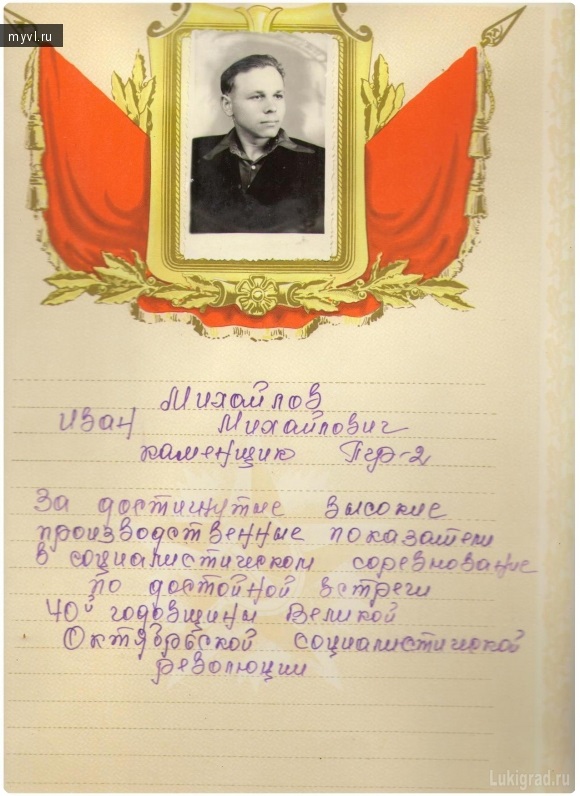 myvl.ru
Михайлов
Иван Михайлович
каменщик
За достигнутые высокие
производственные показатели
в социалистическом соревнование
по достойной встречи
40й годовщины Великой
Октябрьской социалистической
революции
Lukigrad.ru